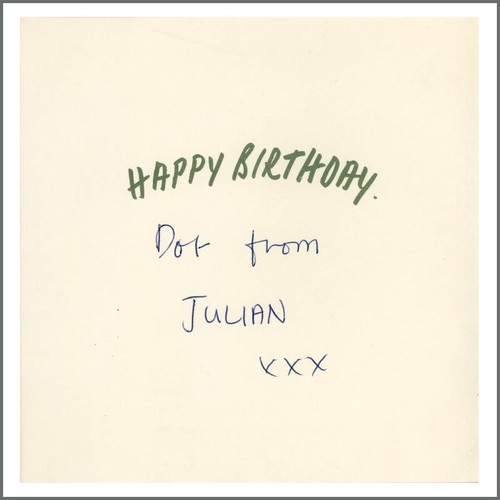 HAPPY BIRTHDAY.
Dot from
JULIAN
xxx